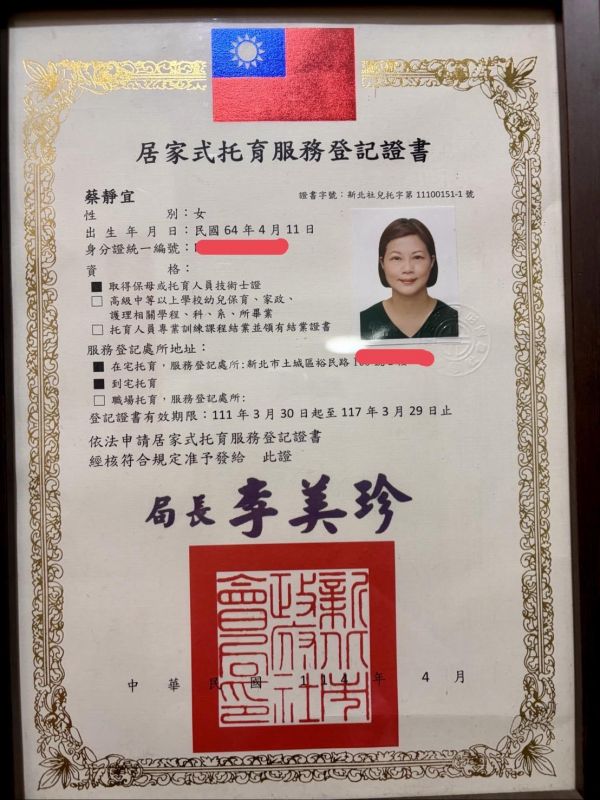 居家式托育服務登記證書
蔡靜宜
證書字號：新北社兒托字第 11100151-1 號
性別：女
出生年月日：民國 64 年 4 月 11 日
身分證統一編號：
資格：
■ 取得保母或托育人員技術士證
□ 高級中等以上學校幼兒保育、家政、
護理相關學程、科、系、所畢業
□ 托育人員專業訓練課程結業並領有結業證書
服務登記處所地址：
■ 在宅托育，服務登記處所:新北市土城區裕民路
■ 到宅托育
□ 職場托育，服務登記處所:
登記證書有效期限：111 年 3 月 30 日起至 117 年 3 月 29 日止
依法申請居家式托育服務登記證書
經核符合規定准予發給 此證
局長 李美珍
新北市
政府社
會局印
中華民國 114 年 4 月